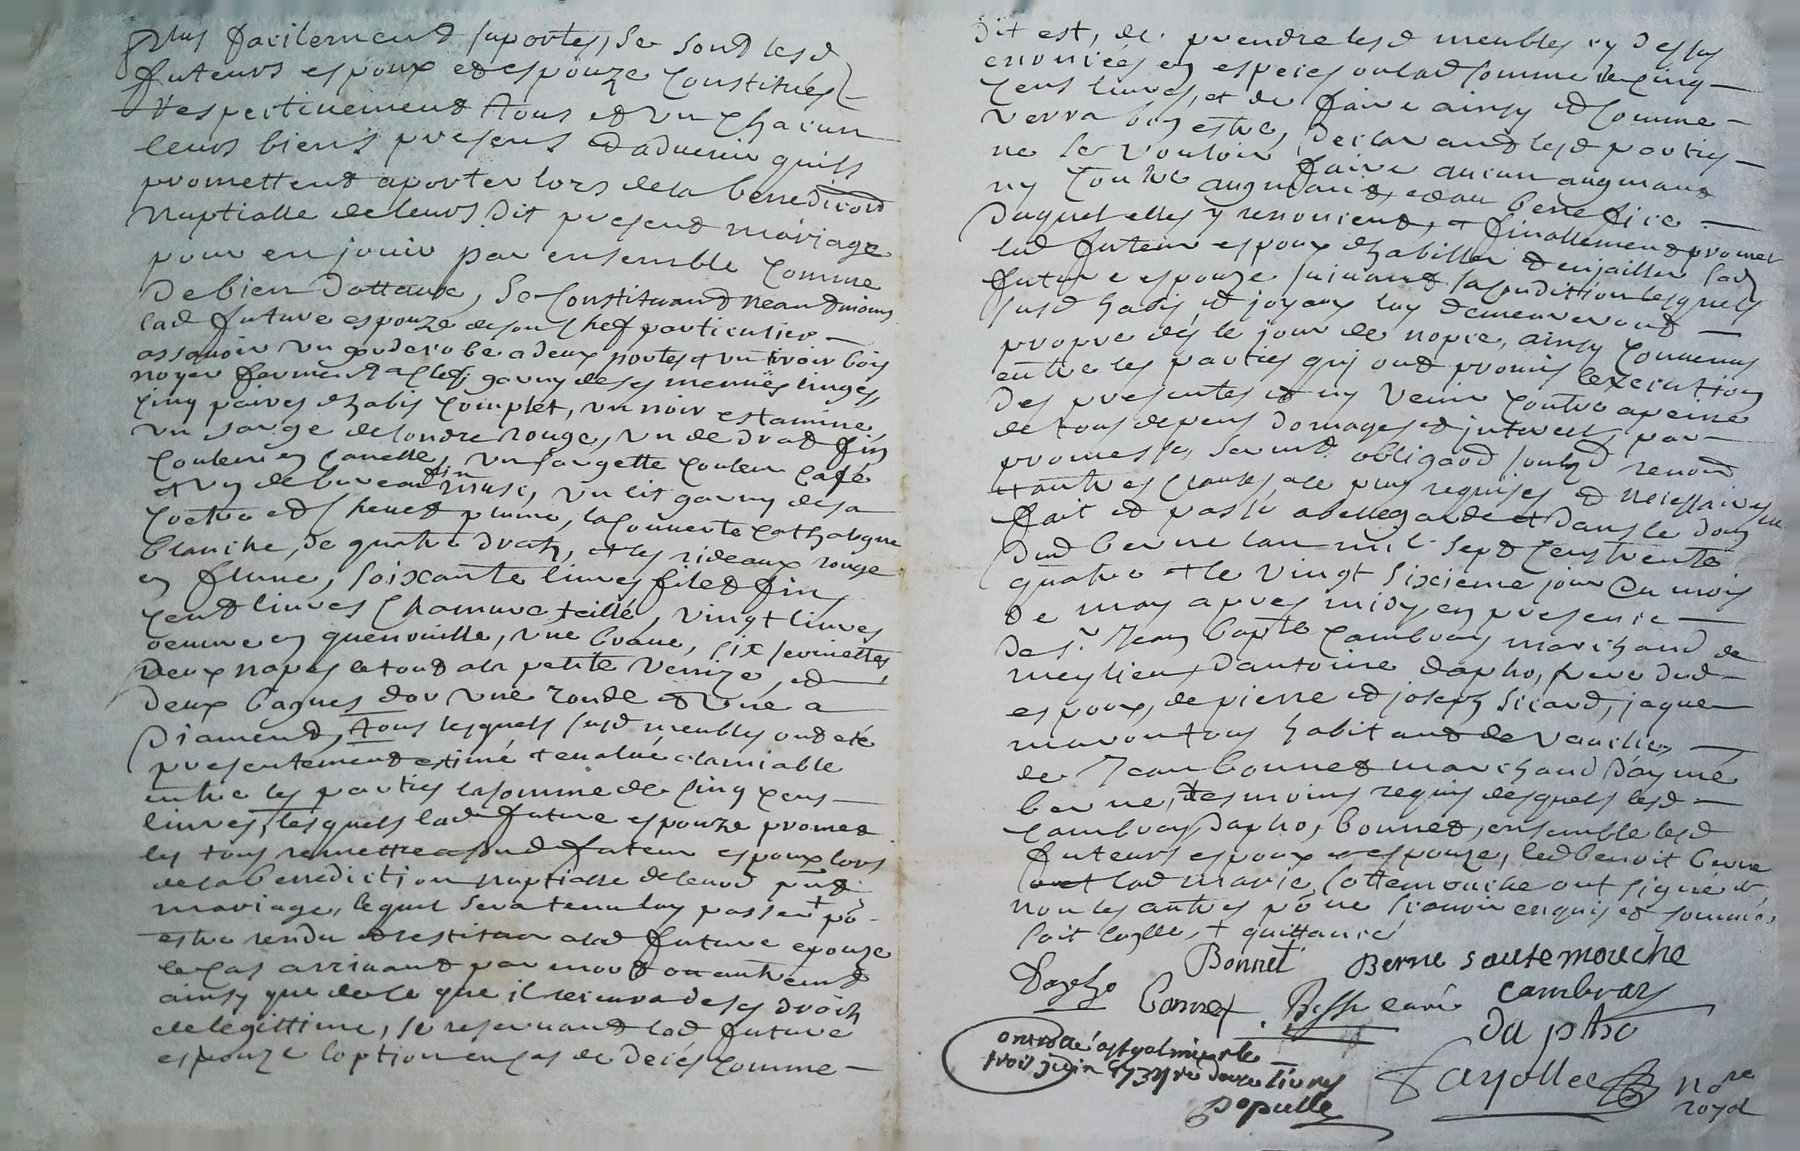 Plus facilement suportes, se sond lesd
futeurs espoux et espouze Constitués
respectivement tous et un chacun
leurs biens presens et aduenir quils
promettent aporter lors de la benediction
Nuptialle de leurs dit present mariage
pour en jouir par ensemble Comme
De bien dottaux, Se Constituand neandmoins
lad future espouze de son chef particulier
assavoir un garderobe a deux portes et un tiroir bois
noyer fermend a clef garny de ses menües linges,
cinq paires d'habis Complet, un noir estamine,
un sarge de londre rouge, un de drad fin
Couleur en Canelle, un sargette Couleur Café
et un de bureau fin musc, un lit garny de sa
Coetre et Chevet plume, la Couuerte Cathalogne
blanche, de quatre draps, et les rideaux rouge
en fleuret, soixante liures filet fin,
Cent liures Chamure teillé, vingt liures
oeuure en quenouille, une braue, six seruiettes,
deux napes le tout a la petite Venize, et
deux bagues d'or une ronde et une a
Diamend, tous lesquels susd meubles ond été
presentement estimé et eualué a lamiable
entre les parties la somme de Cinq cens
liures, lesquels lad future espouze promet
les tous remettre a sond futeur espoux lors
de la benediction nuptialle de leurd pnt
mariage, lequel sera tenu luy passer pr
estre rendu et restituer a lad future epouze
le cas arriuant par mort ou autrement
ainsy que de ce que il receura de ses droits
de legittime, se reseruand lad future
espouze loption en cas de deces Comme
Dit est, de prendre lesd meubles cy dessus
enoncées en especes ou lad somme de Cinq
Cens liures, et de faire ainsy et Comme
verra bon estre, Declarand lesd parties
ne se vouloir faire aucun augmand
ny Contre augmand, et au benefice
Duquel elles y renoncent, et finallement promet
led futeur espoux d'habiller et enjailler lad
future espouze suiuant sa Condition lesquels
susd habis et joyaux luy demeureront
propre dés le jour de nopce, ainsy Conuenus
entre les parties qui ond promis lexecution
Des presentes et ny venir Contre a peine
de tous depens domages et interest, par
promesse, sermt. obligaōd soubzd renōd
et autres Clauses a ce plus requises et necessaires
fait et passé a bellegarde et dans le dom
dud berne lan mil sept cens trente
quatre et le vingt sixieme jour du mois
de may apres midy, en presence
de Sr. Jean bapte Cambray marchand de
mey lieu, d'antoine dapho, frere dud
espoux, de pierre et joseph Sicard, jaques
maron tous habitand de vauches
de Jean bonnet marchand d'aymé
berne, tesmoins requis desquels lesd
Cambray, dapho, bonnet, ensemble lesd
futeurs espoux et espouze, led benoit berne
lad marie Sottemouche ont signé et
non les autres pr ne scauoir enquis et sommés
soit Controllé, et quittance
Bonnet Berne sautemouche
Dapho Bonnet Bessi curé cambray
da pho
ontrollé a st galmier le
trois juin 1734 re douze liures
Populle
Fayolle nore
royal